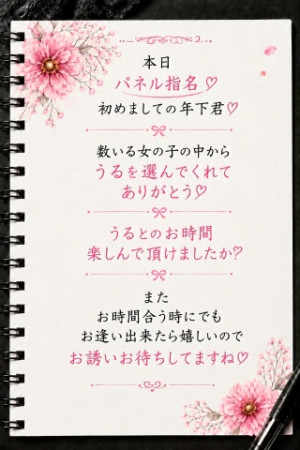 本日
パネル指名♡
初めましての年下君♡
数いる女の子の中から
うるを選んでくれて
ありがとう♡
うるとのお時間
楽しんで頂けましたか?
また
お時間合う時にでも
お逢い出来たら嬉しいので
お誘いお待ちしてますね♡